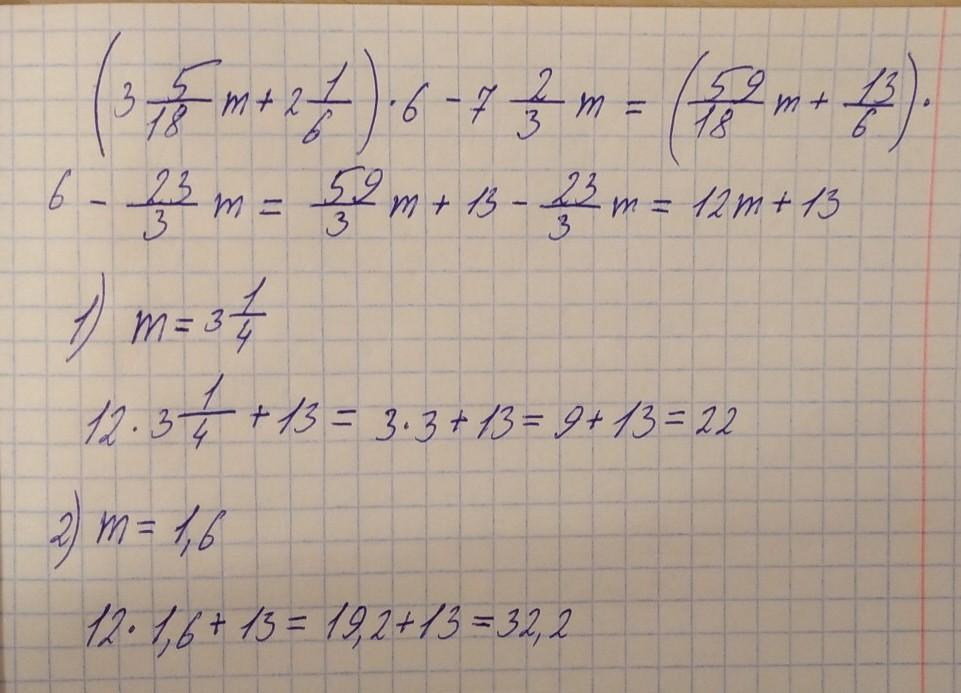 (3 5/18 m + 2 1/6) · 6 - 7 2/3 m = (59/18 m + 13/6) ·
6 - 23/3 m = 59/3 m + 13 - 23/3 m = 12m + 13
1) m = 3 1/4
12 · 3 1/4 + 13 = 3 · 3 + 13 = 9 + 13 = 22
2) m = 1,6
12 · 1,6 + 13 = 19,2 + 13 = 32,2